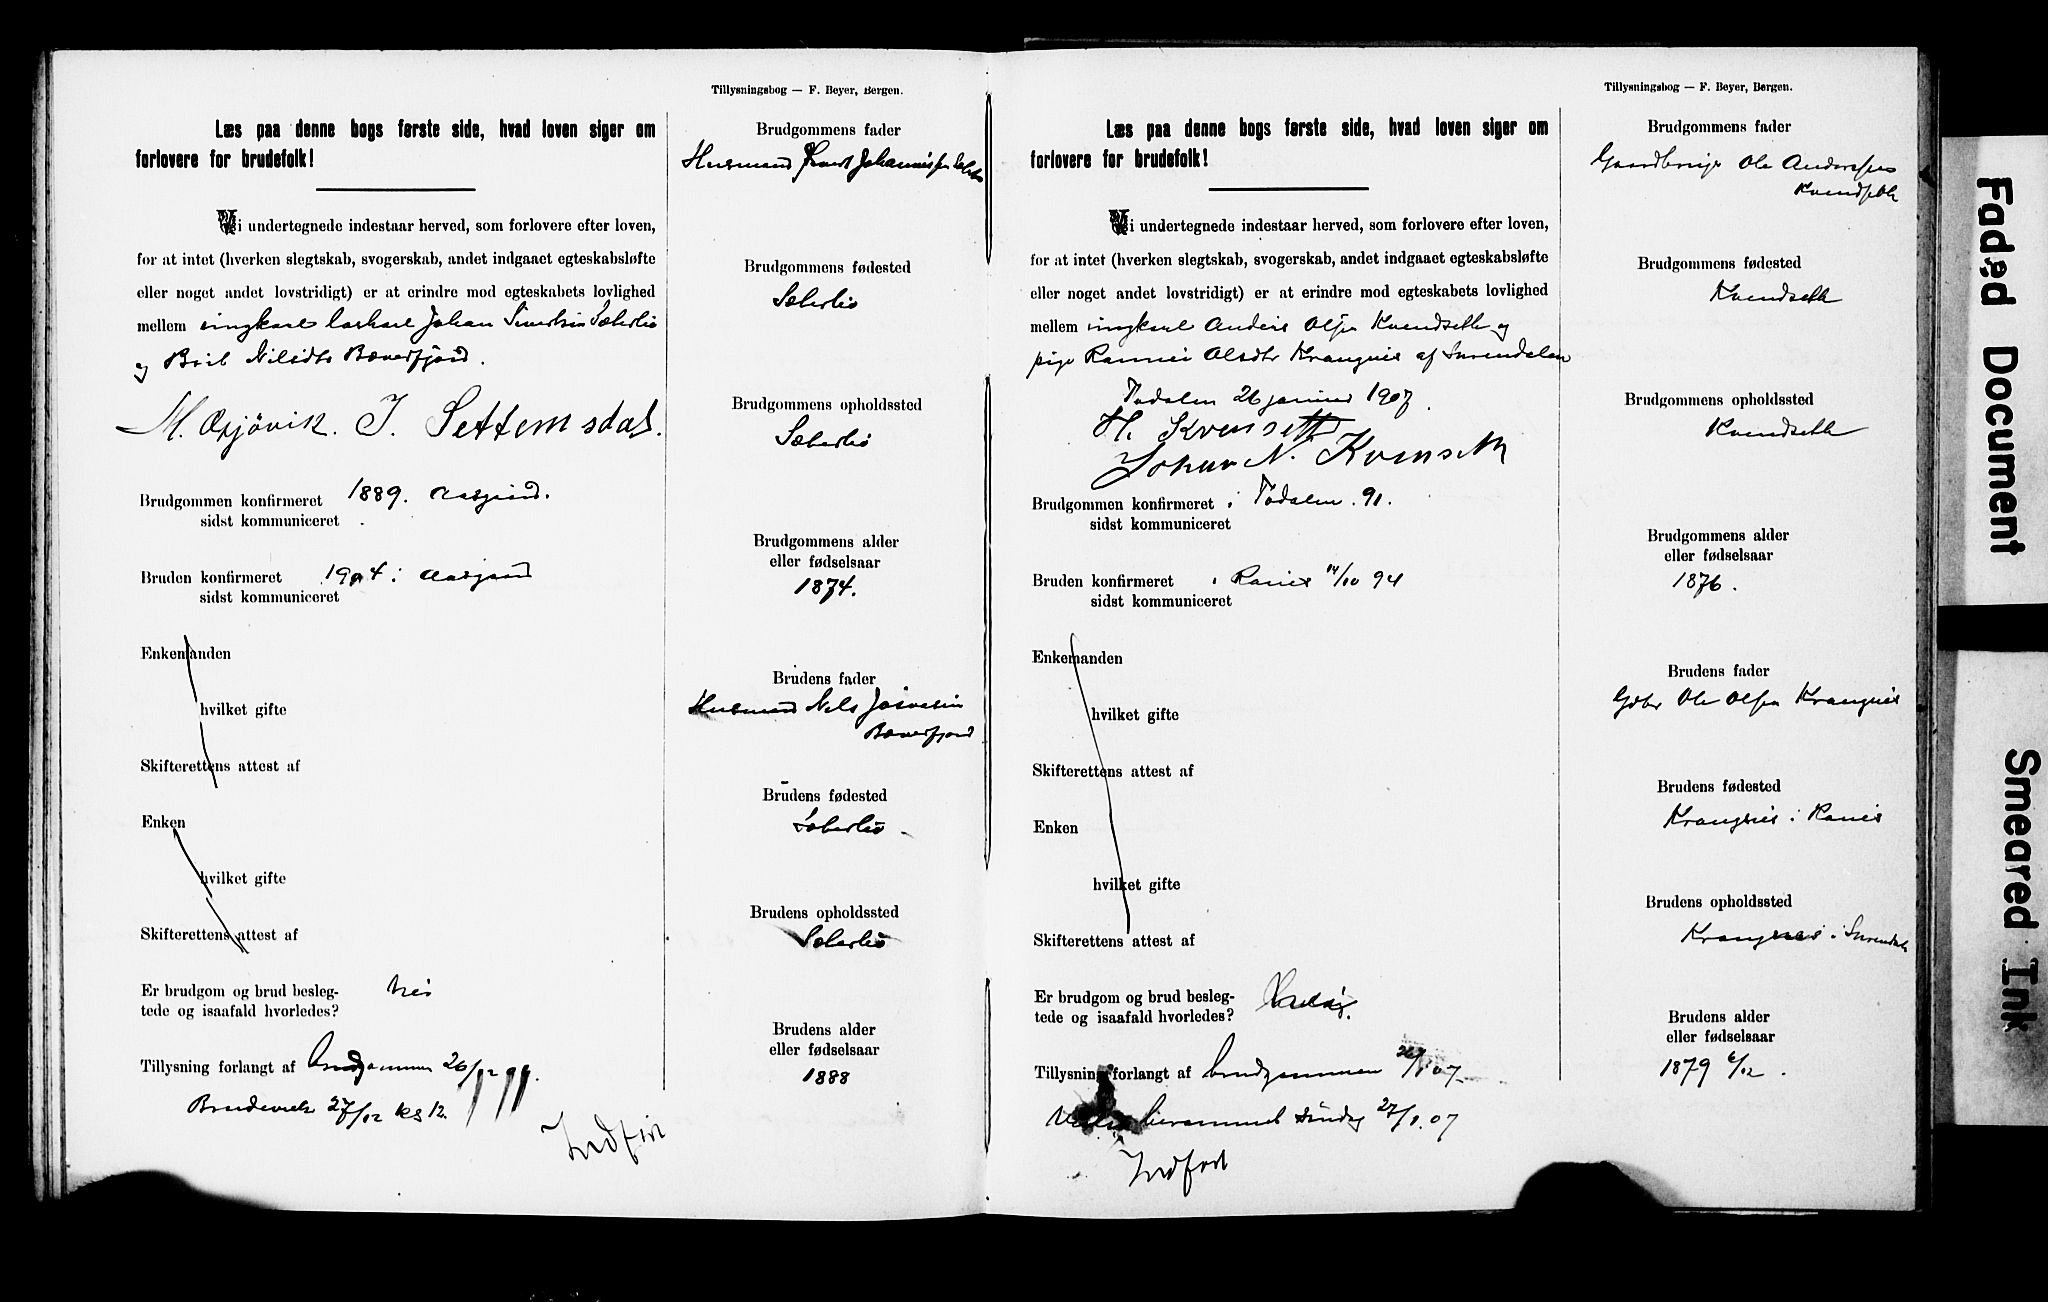 Tillysningsbog — F. Beyer, Bergen.
Læs paa denne bogs første side, hvad loven siger om
forlovere for brudefolk!
Vi undertegnede indestaar herved, som forlovere efter loven,
for at intet (hverken slegtskab, svogerskab, andet indgaaet egteskabsløfte
eller noget andet lovstridigt) er at erindre mod egteskabets lovlighed
mellem ungkarl Johan Sæterlið
og Beret Nilsdtr Bæverfjord.
M. Ørsjövik. I. Settemsdal.
Brudgommen konfirmeret 1889. Aasgaard.
sidst kommuniceret
Bruden konfirmeret 1904 i Aasgaard
sidst kommuniceret
Enkemanden
hvilket gifte
Skifterettens attest af
Enken
hvilket gifte
Skifterettens attest af
Er brudgom og brud besleg-
tede og isaafald hvorledes? Nei
Tillysning forlangt af brudgommen 26/12
27/12 kl 12.
Indført
Brudgommens fader
Husmand Johannessen
Brudgommens fødested
Sæterlið
Brudgommens opholdssted
Sæterlið
Brudgommens alder
eller fødselsaar
1874.
Brudens fader
Husmand Nels
Bæverfjord
Brudens fødested
Sæterlið
Brudens opholdssted
Sæterlið
Brudens alder
eller fødselsaar
1888
Tillysningsbog — F. Beyer, Bergen.
Læs paa denne bogs første side, hvad loven siger om
forlovere for brudefolk!
Vi undertegnede indestaar herved, som forlovere efter loven,
for at intet (hverken slegtskab, svogerskab, andet indgaaet egteskabsløfte
eller noget andet lovstridigt) er at erindre mod egteskabets lovlighed
mellem ungkarl Anders Olsen Kvendseth og
pige Rannei Olsdtr Krangnes af Surendalen
Todalen 26 januar 1907.
H. Kvenseth
Johan N. Kvenseth
Brudgommen konfirmeret i Todalen. 91.
sidst kommuniceret
Bruden konfirmeret i Ranes 14/10 94
sidst kommuniceret
Enkemanden
hvilket gifte
Skifterettens attest af
Enken
hvilket gifte
Skifterettens attest af
Er brudgom og brud besleg-
tede og isaafald hvorledes?
Tillysning forlangt af brudgommen 26/1 07
berammet søndag 27/1. 07
Indført
Brudgommens fader
Gaardbruger Ole Andersen
Kvendseth
Brudgommens fødested
Kvendseth
Brudgommens opholdssted
Kvendseth
Brudgommens alder
eller fødselsaar
1876.
Brudens fader
Gdbr Ole Olsen Krangnes
Brudens fødested
Krangnes i Ranes
Brudens opholdssted
Krangnes i Surendal
Brudens alder
eller fødselsaar
1879 6/12.
Faded Document
Smeared Ink